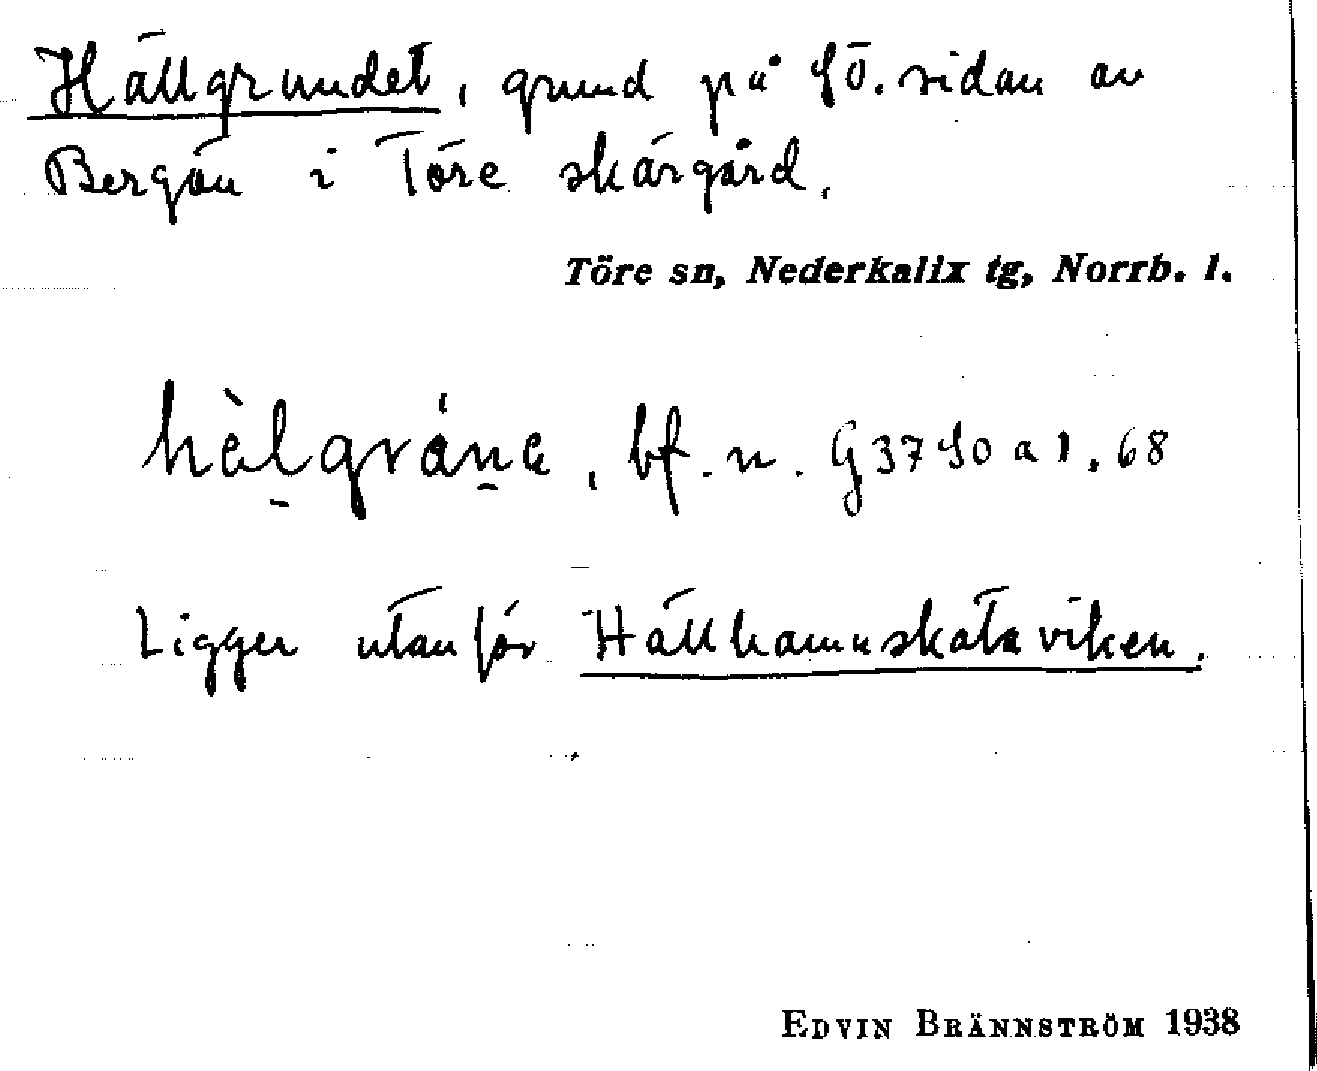 Hällgrundet, grund på SÖ. sidan av
Bergön i Töre skärgård.
Töre sn, Nederkalix tg, Norrb. l.
bf. n.
Ligger utanför Hällhamnskataviken.
EDVIN BRÄNNSTRÖM 1938